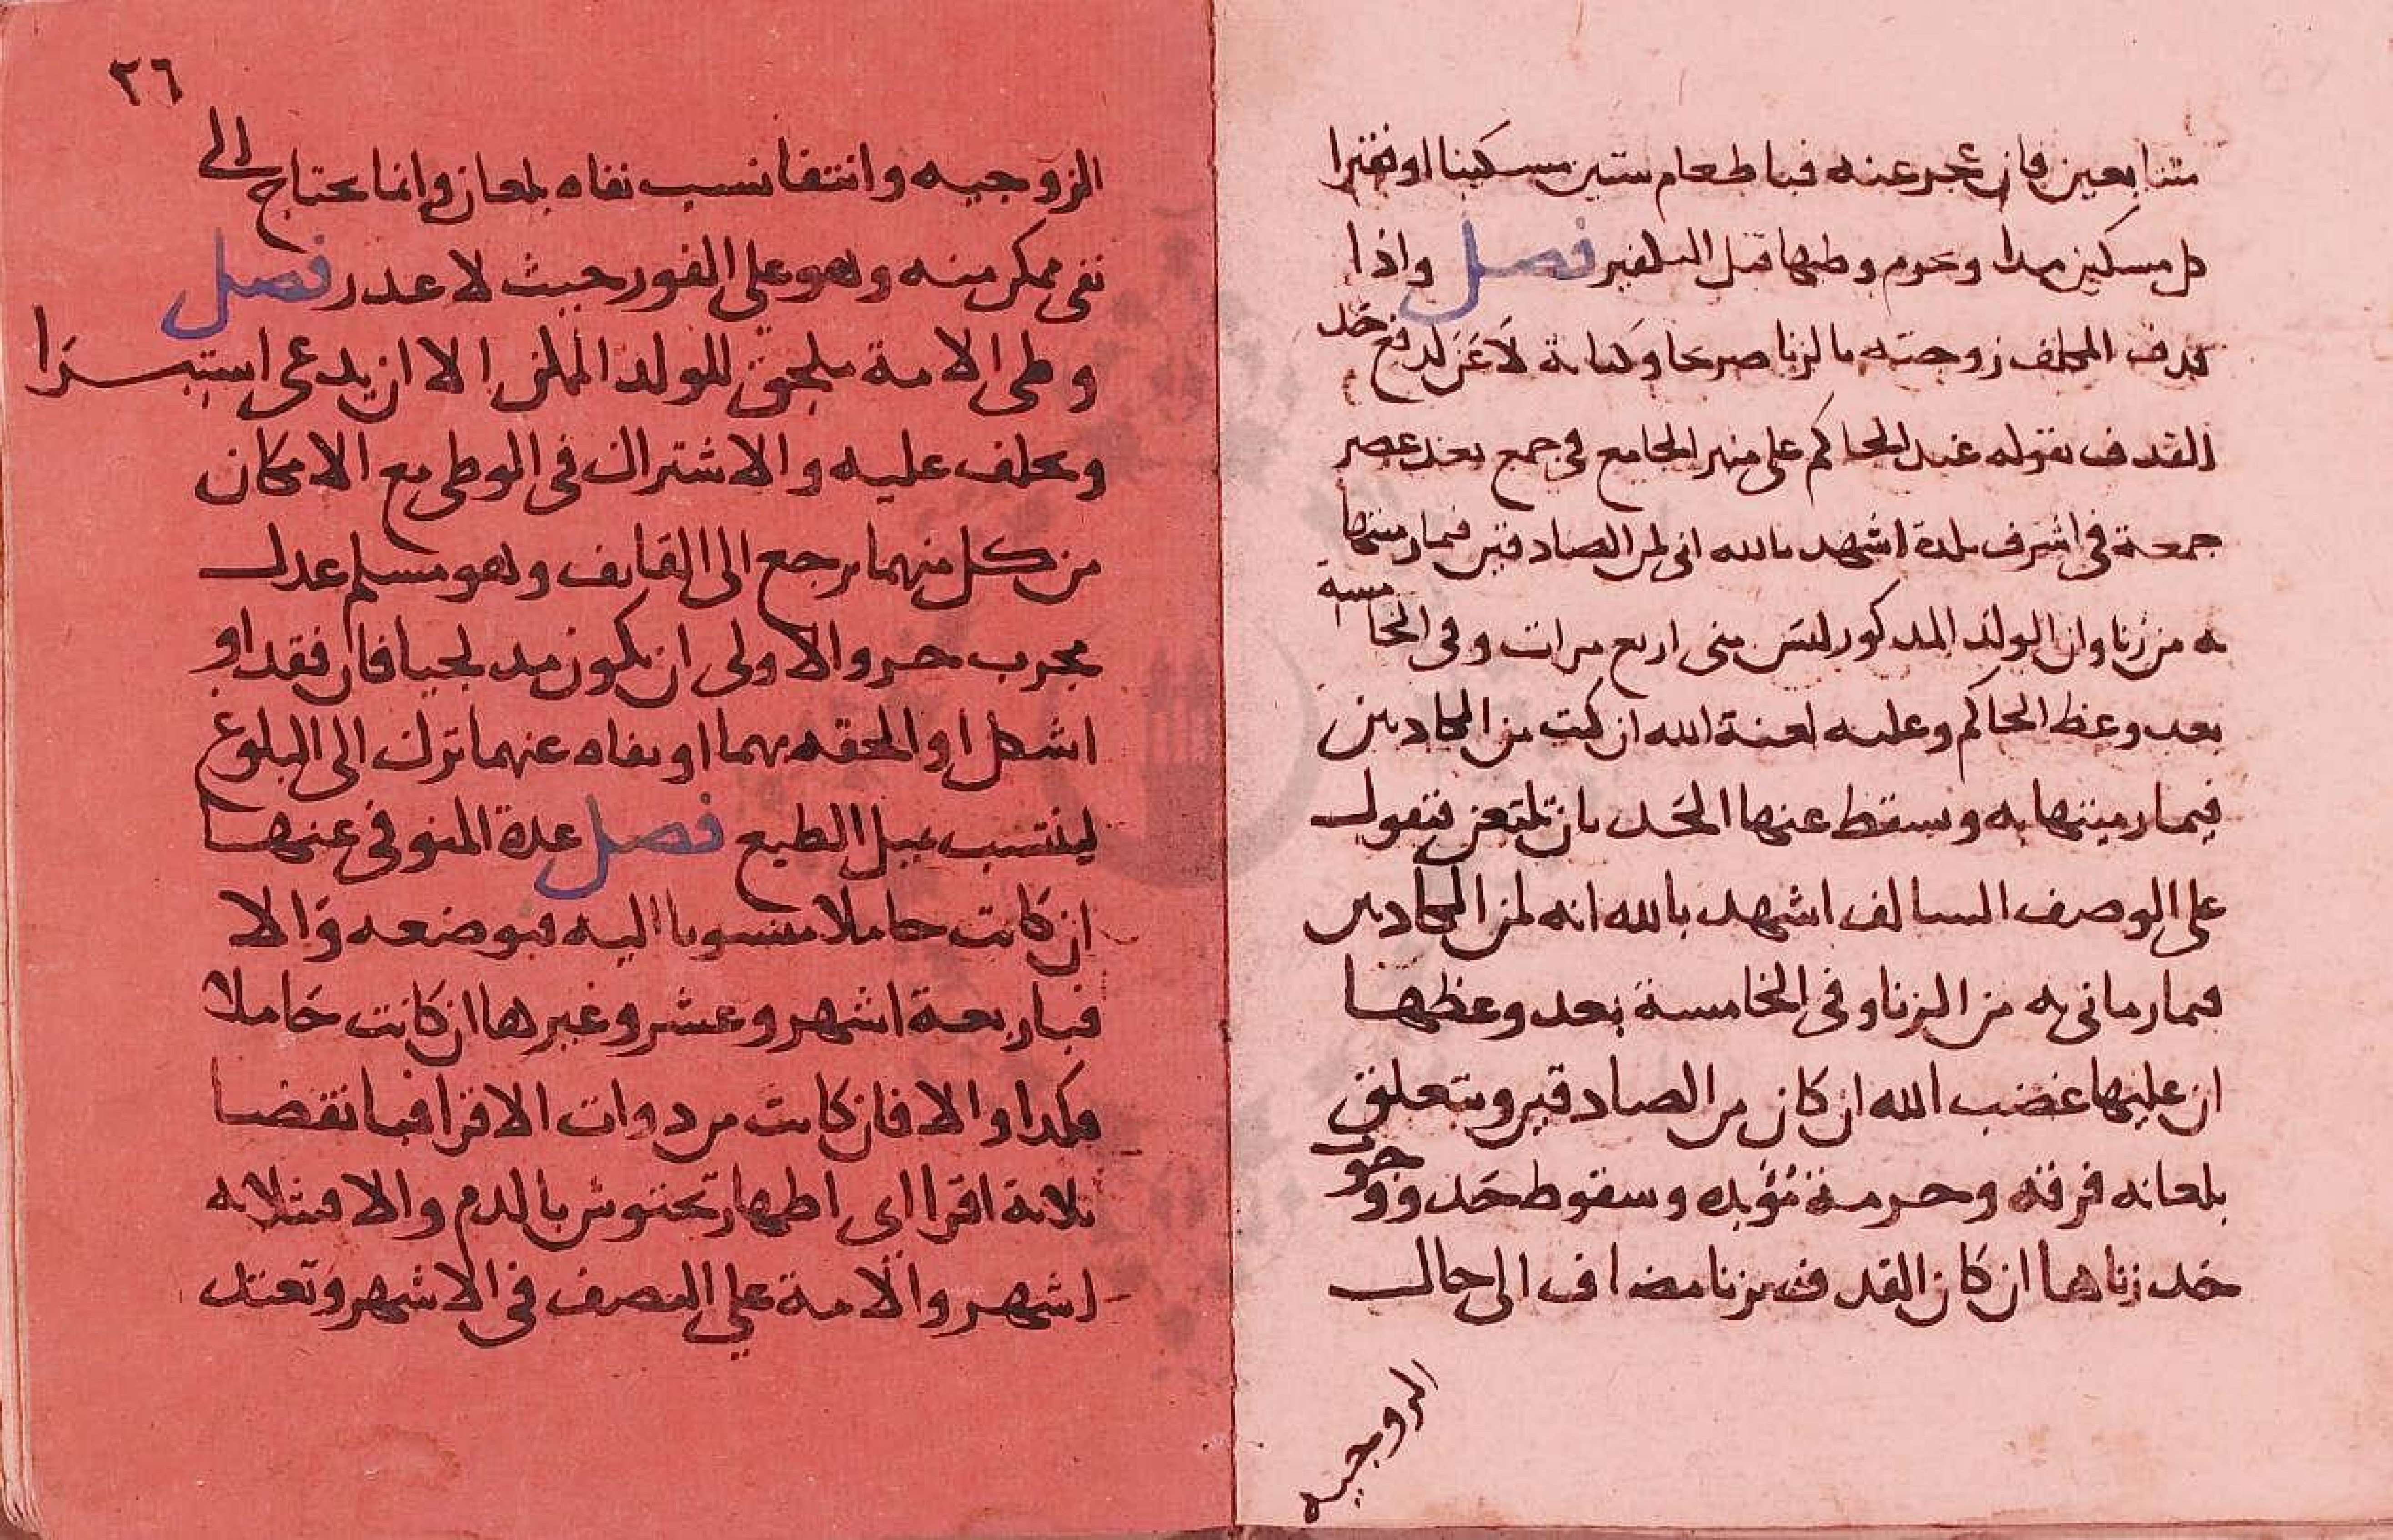 متتابعين فان عجز عنه فباطعام ستين مسكينا او فقيرا
كل مسكين مدا وحرم وطيها قبل التكفير فصل واذا
قدف المكلف زوجته بالزنا صرحا وكناية لاعن لدفع حد
القدف بقوله عند الحاكم على منبر الجامع في جمع بعد عصر
جمعة في اشرف بلدة اشهد بالله اني لمن الصادقين فيما رميتها
به من زنا وان الولد المدكور ليس مني اربع مرات وفي الخامسة
بعد وعظ الحاكم وعليه لعنة الله ان كنت من الكادبين
فيما رميتها به وسقط عنها الحد بان تلتعن فتقول
على الوصف السالف اشهد بالله انه لمن الكادبين
فيما رماني به من الزنا وفي الخامسة بعد وعظها
ان عليها غضب الله ان كان من الصادقين ويتعلق
بلعانه فرقة وحرمة مؤبده وسقوط حد ووجوب
حد زناها ان كان القدف بزنا مضاف الى حال
الزوجيه
٢٦
الزوجيه وانتفا نسب نفاه بلعان وانما يحتاج الى
نفي ممكن منه وهو على الفور حيث لا عدر فصل
وطى الامة ملحق للولد المكن الا ان يدعى استبرا
ويحلف عليه والاشتراك في الوطى مع الامكان
من كل منهما يرجع الى القايف وهو مسلم عدل
مجرب حر والاولى ان يكون مدلجيا فان فقد او
اشكل او الحقه بهما او نفاه عنهما ترك الى البلوغ
لينتسب بميل الطبع فصل عدة المتوفى عنها
ان كانت حاملا منسوبا اليه فبوضعه والا
فباربعة اشهر وعشر وغيرها ان كانت حاملا
فكدا والا فان كانت من دوات الاقرا فبانقضا
ثلاثة اقرا اي اطهار تحتوش بالدم والا فثلاثه
اشهر والامة علي النصف في الاشهر وتعتد